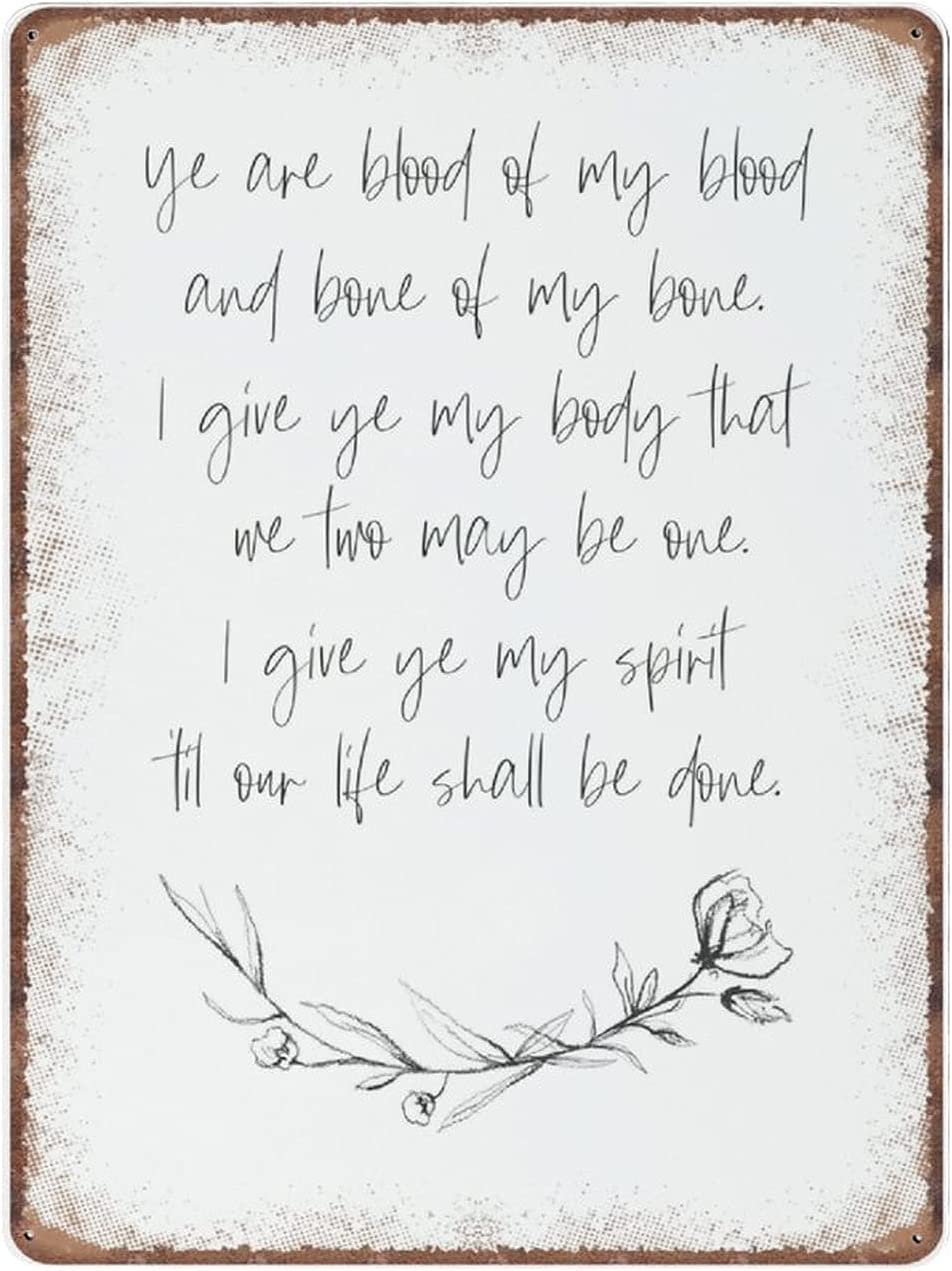 ye are blood of my blood
and bone of my bone.
I give ye my body that
we two may be one.
I give ye my spirit
'til our life shall be done.